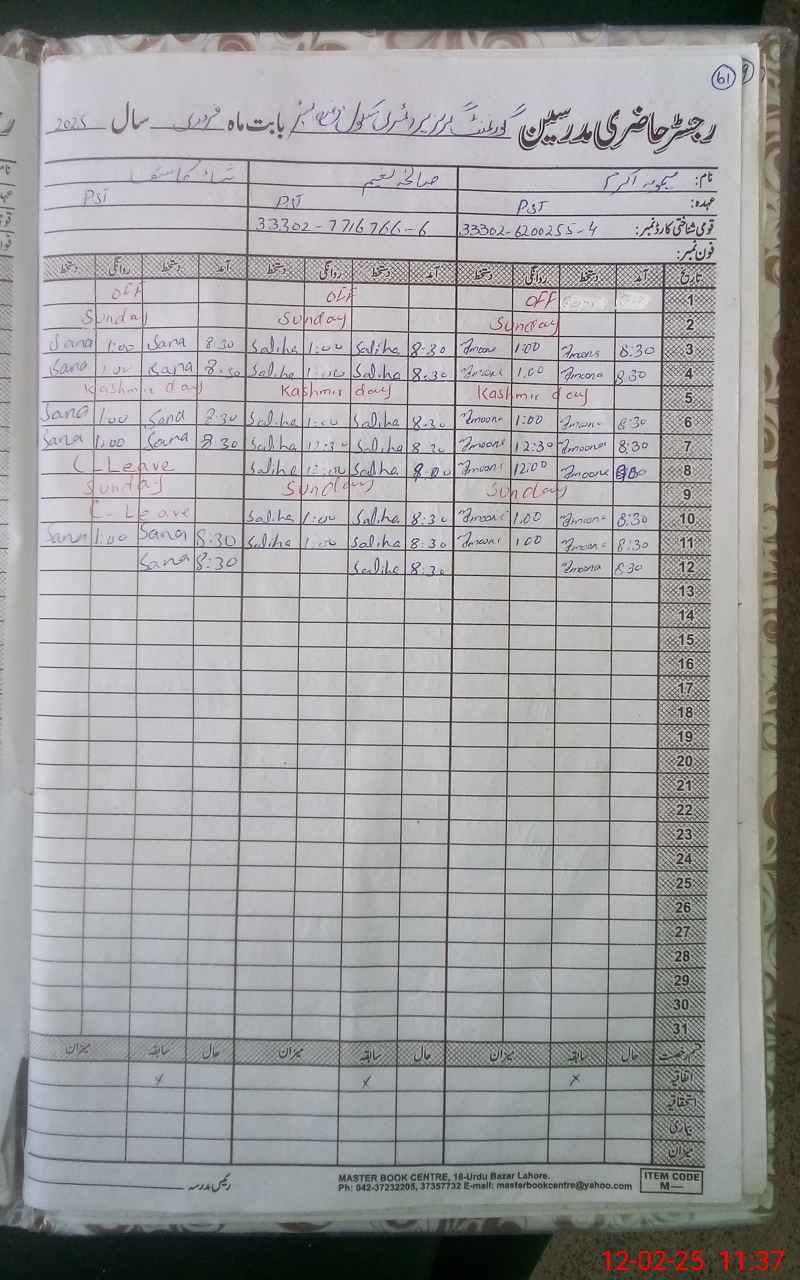 61
رجسٹر حاضری مدرسین گورنمنٹ گرلز پرائمری سکول بابت ماہ فروری سال 2025
نام: میمونہ اکرم صالحہ نعیم ثناء
عہدہ: PST PST PST
قومی شناختی کارڈ نمبر: 33302-6200255-4 33302-7716766-6
فون نمبر:
تاریخ آمد دستخط روانگی دستخط آمد دستخط روانگی دستخط آمد دستخط روانگی دستخط
1 OFF OFF OFF
2 Sunday Sunday Sunday
3 8:30 1:00 8:30 Saliha 1:00 Saliha 8:30 Sana 1:00 Sana
4 8:30 1:00 8:30 Saliha 1:00 Saliha 8:30 Sana 1:00 Sana
5 Kashmir day Kashmir day Kashmir day
6 8:30 1:00 8:30 Saliha 1:00 Saliha 8:30 Sana 1:00 Sana
7 8:30 12:30 8:30 Saliha 12:30 Saliha 8:30 Sana 1:00 Sana
8 12:00 8:00 Saliha 12:00 Saliha C-Leave
9 Sunday Sunday Sunday
10 8:30 1:00 8:30 Saliha 1:00 Saliha C-Leave
11 8:30 1:00 8:30 Saliha 1:00 Saliha 8:30 Sana 1:00 Sana
12 8:30 8:30 Saliha 8:30 Sana
13
14
15
16
17
18
19
20
21
22
23
24
25
26
27
28
29
30
31
قسم رخصت حال سابقہ میزان حال سابقہ میزان حال سابقہ میزان
اتفاقیہ x x x
استحقاقیہ
بیماری
میزان
رئیس مدرسہ
MASTER BOOK CENTRE, 16-Urdu Bazar Lahore.
Ph: 042-37232205, 37357732 E-mail: masterbookcentre@yahoo.com
ITEM CODE
M—
12-02-25 11:37